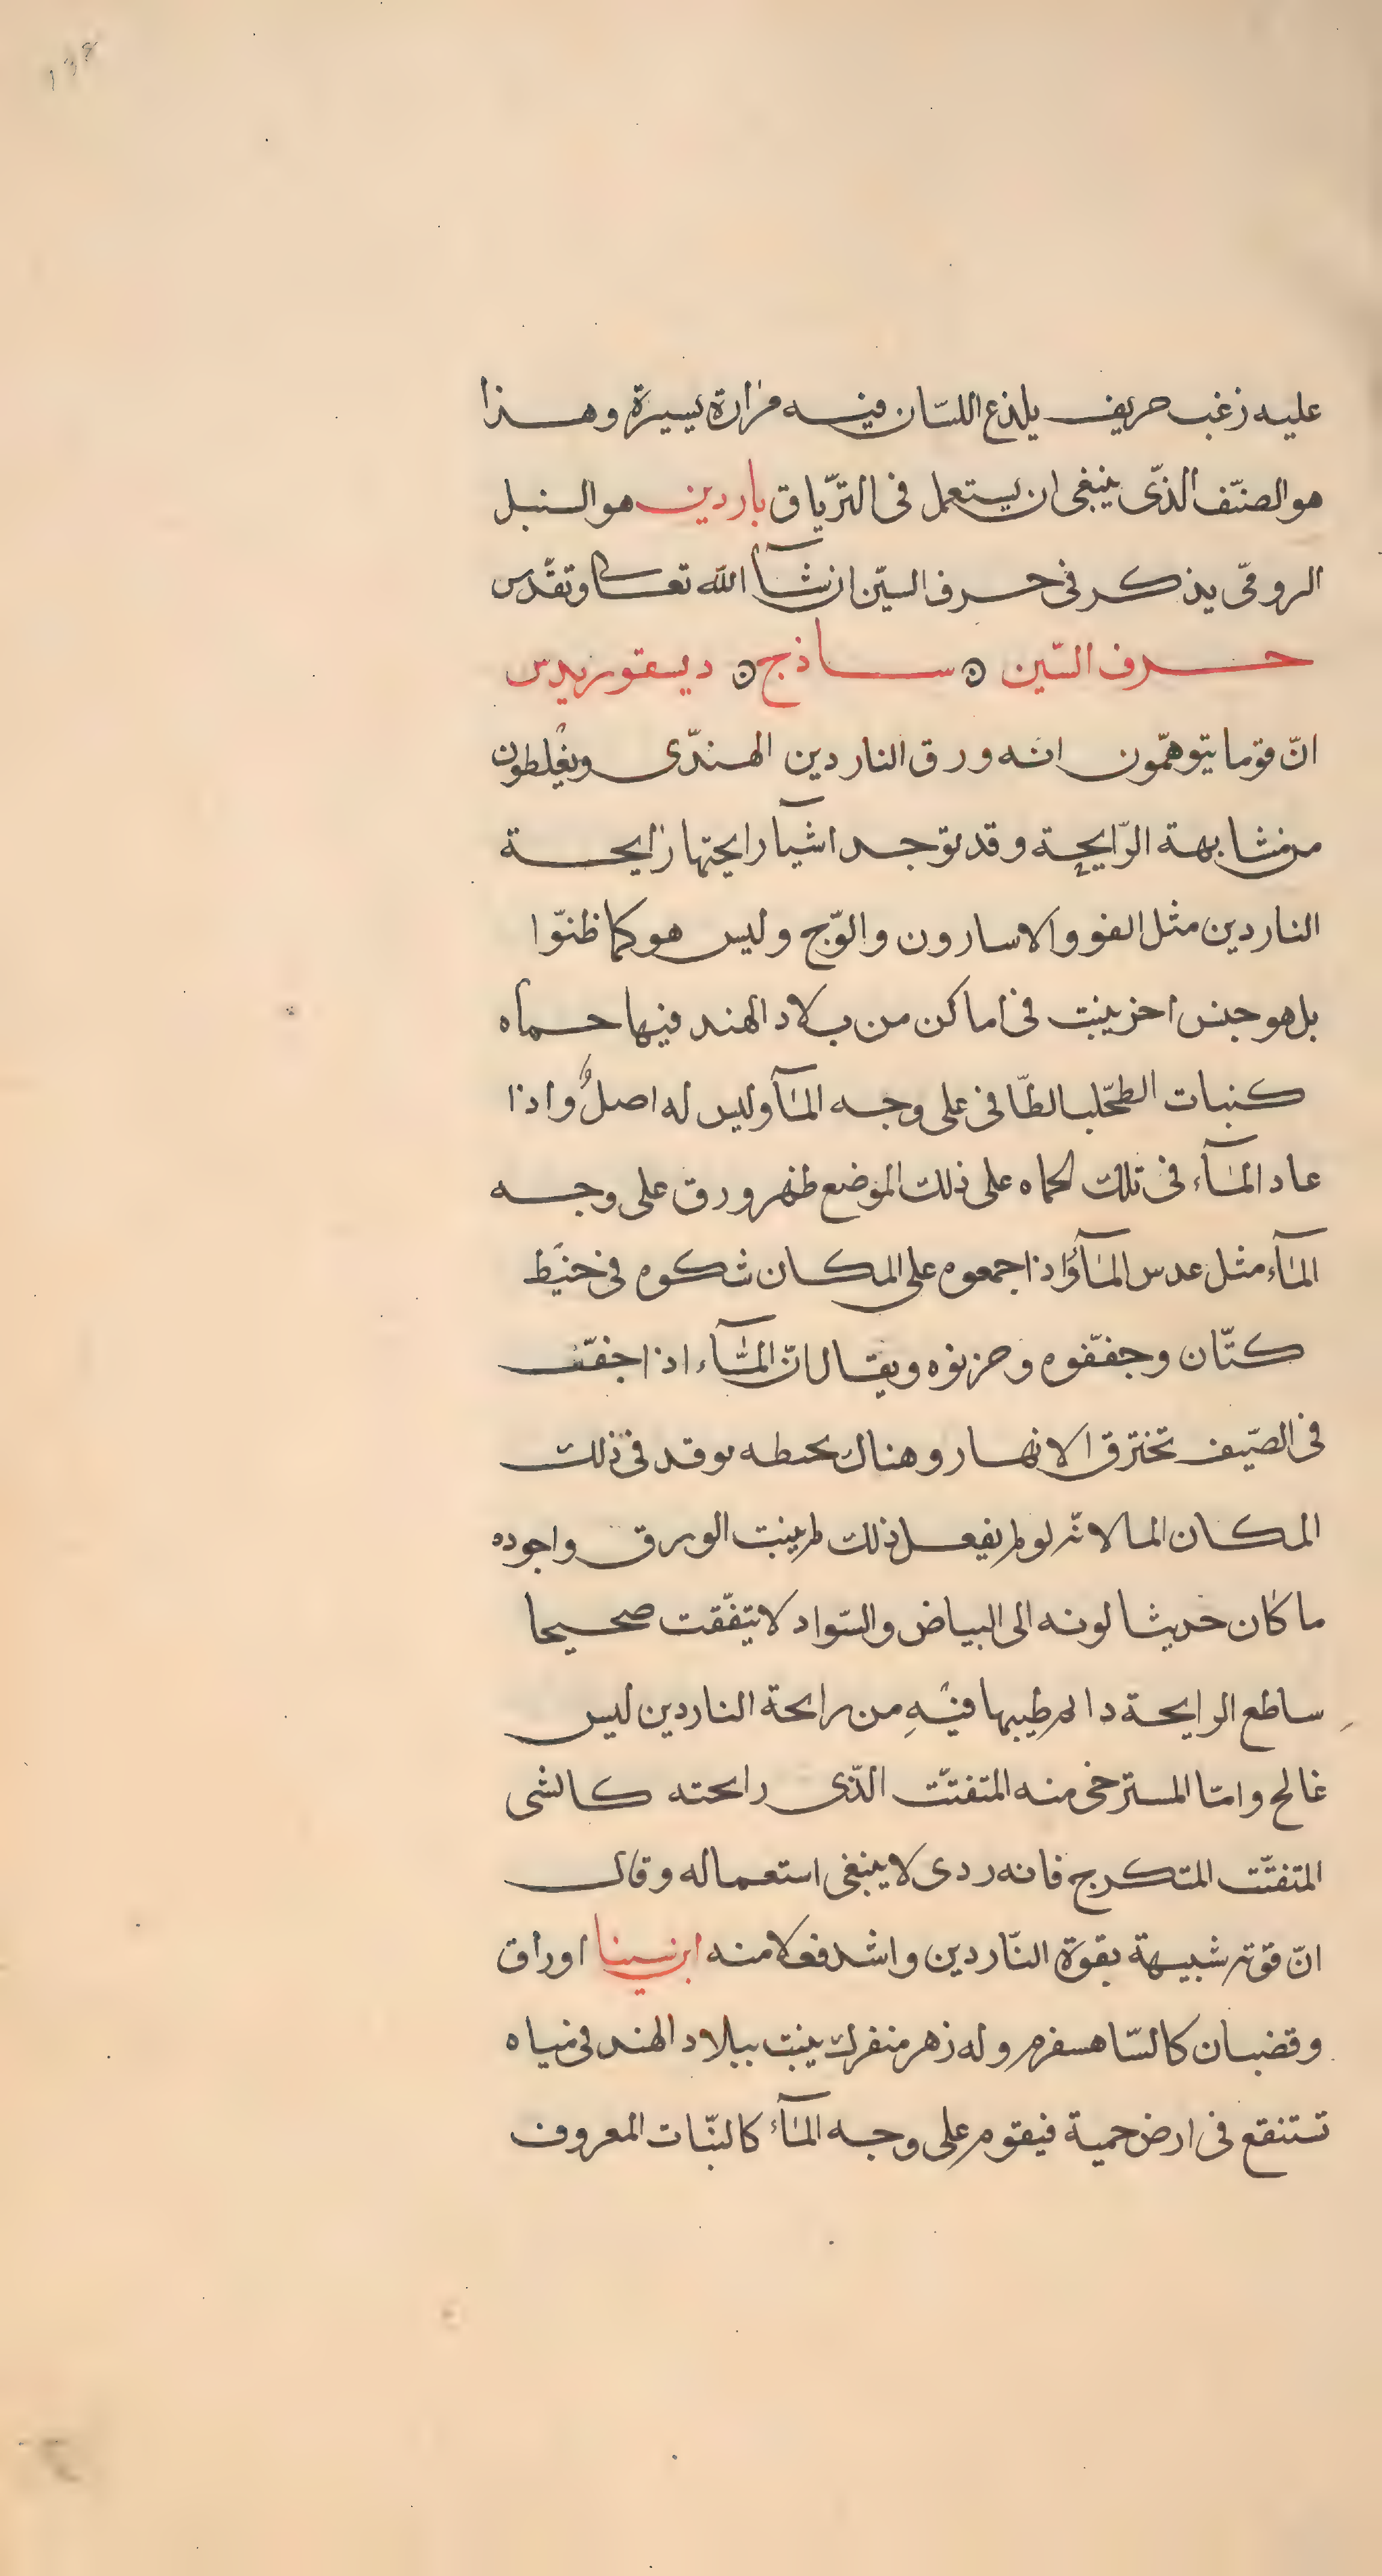 ١٣٤
عليه زغب حريف يلذع اللسّان فيه مرارة يسيرة وهذا
هو الصنّف الذّى ينبغى ان يستعمل فى الترّياق باردين هو السنبل
الرومىّ يذكر فى حرف السيّن ان شآ الله تعالى وتقدّس
حرف السّين ساذج ديسقوريدس
انّ قوما يتوهمّون انه ورق الناردين الهندّى ويغلطون
من مشابهة الرّايحة وقد توجد اشيآ رايحتها رايحة
الناردين مثل الفو والاسارون والوّج وليس هو كما ظنوّا
بل هو جنس اخر ينبت فى اماكن من بلاد الهند فيها حماه
كنبات الطحّلب الطّافى على وجه المآ وليس له اصلٌ واذا
عاد المآء فى تلك الحماه على ذلك الموضع ظهر ورق على وجه
المآء مثل عدس المآ واذا جمعوه على المكان شكوه فى خيط
كتّان وجففّوه وخزنوه ويقال انّ المآء اذا جفّف
فى الصّيف تخترق الانهار وهناك يحيطه يوقد فى ذلك
المكان الما لانّه لو لم يفعل ذلك لم ينبت الورق واجوده
ما كان حديثا لونه الى البياض والسّواد لا يتفّقت صحيحا
ساطع الرايحة دائم طيبها فيهِ من رايحة الناردين ليس
غالح وامّا المسترخى منه المتفتّت الذّى رايحته كالشى
المتفتّت المتكرج فانه ردى لا ينبغى استعماله وقال
انّ قوته شبيهة بقوة النّاردين واشد فعلا منه ابن سينا اوراق
وقضبان كالسّاهسفرم وله زهر منفرك ينبت ببلاد الهند فى مياه
تستنقع فى ارض حمية فيقوم على وجه المآء كالنبّات المعروف